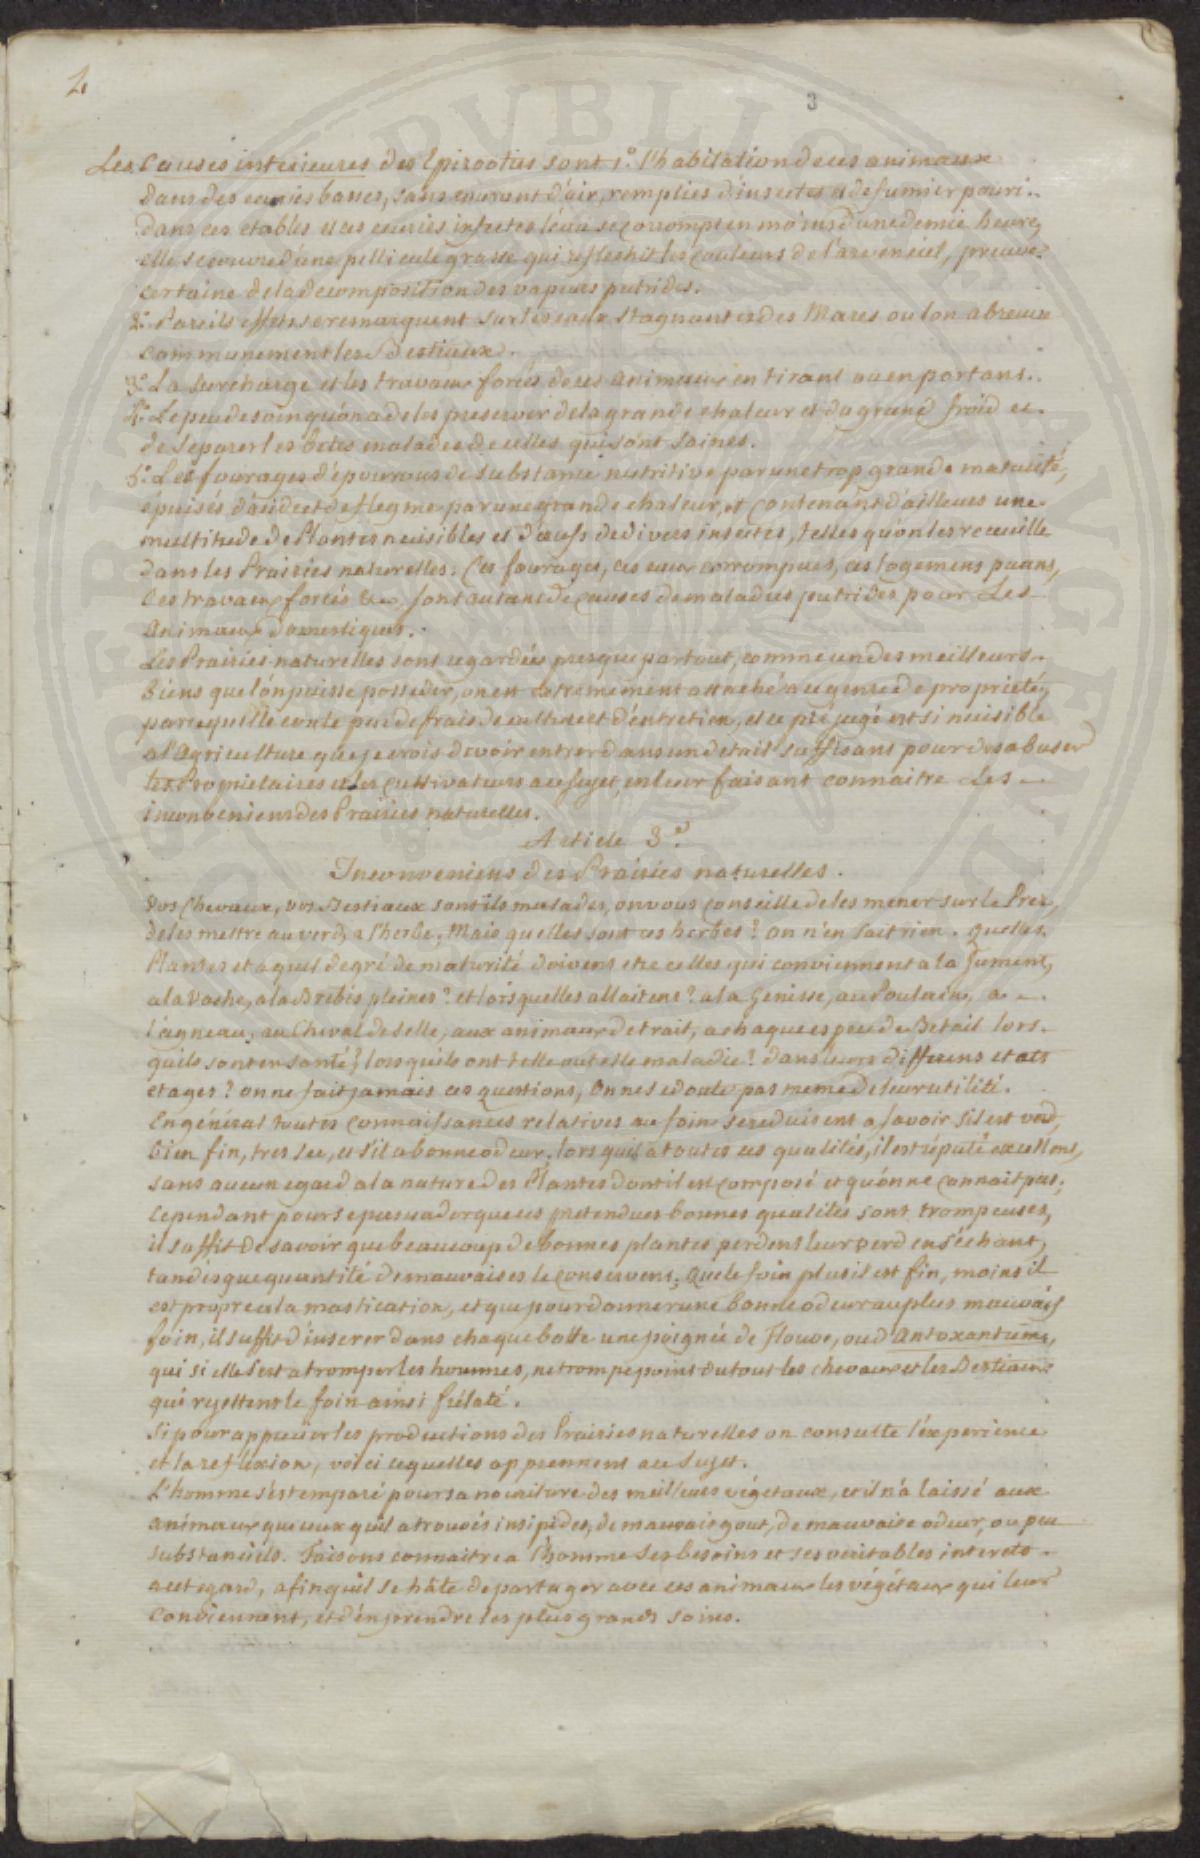 2
3
Les Causes interieures des Epizooties sont 1.° l'habitation de ces animaux
dans des ecuries basses, sans courant d'air, remplies d'insectes et de fumier pouri.
dans ces etables et ces ecuries infectes l'eau se corrompt en moins d'une demie heure,
elle se couvre d'une pellicule grasse qui reflechit les couleurs de l'arc en ciel, preuve
certaine de la decomposition des vapeurs putrides.
2.° Pareils effets se remarquent sur les eaux stagnantes des Mares ou l'on abreuve
communement les Bestiaux.
3.° La surcharge et les travaux forcés de ces animaux en tirant ou en portant.
4.° Le peu de soin qu'on a de les preserver de la grande chaleur et du grand froid et
de separer les betes malades de celles qui sont saines.
5.° Les fourages dépourvus de substance nutritive par une trop grande maturité,
épuisés d'acide et de flegme par une grande chaleur, et contenant d'ailleurs une
multitude de Plantes nuisibles et d'œufs de divers insectes, telles qu'on les recueille
dans les Prairies naturelles. Ces fourages, ces eaux corrompues, ces logemens puans,
ces travaux forcés &c. sont autant de causes de maladies putrides pour Les
Animaux domestiques.
Les Prairies naturelles sont regardées presque partout, comme un des meilleurs
Biens que l'on puisse posseder, on est extremement attaché a ce genre de proprieté,
parcequ'elle coute peu de frais de culture et d'entretien, et ce préjugé est si nuisible
a l'Agriculture que je crois devoir entrer dans un detail suffisant pour desabuser
les Proprietaires et les Cultivateurs au sujet, en leur faisant connaitre Les
inconveniens des Prairies naturelles.
Article 3.e
Inconveniens des Prairies naturelles.
Vos Chevaux, vos Bestiaux sont ils malades, on vous conseille de les mener sur le Prez,
de les mettre au verd, a l'herbe; Mais quelles sont ces herbes? On n'en sait rien. Quelles
Plantes et a quel degré de maturité doivent etre celles qui conviennent a la Jument,
a la Vache, a la Brebis pleines? et lorsquelles allaitent? a la Genisse, au Poulain, a
l'agneau, au Cheval de selle, aux animaux de trait, a chaque espece de Betail lors
quils sont en santé? lorsquils ont telle ou telle maladie? dans leurs differens etats
et ages? on ne fait jamais ces questions, On ne se doute pas meme de leur utilité.
En général toutes connaissances relatives au foin se reduisent a savoir s'il est verd,
bien fin, tres sec, et s'il a bonne odeur; lors qu'il a toutes ces qualités, il est réputé excellent,
sans aucun egard a la nature des Plantes dont il est composé et qu'on ne connait pas;
Cependant pour se persuader que ces pretendues bonnes qualités sont trompeuses,
il suffit de savoir que beaucoup de bonnes plantes perdent leur verd en séchant,
tandis que quantité de mauvaises le conservent; Que le foin plus il est fin, moins il
est propre a la mastication, et que pour donner une bonne odeur au plus mauvais
foin, il suffit d'inserer dans chaque botte une poignée de Flouve, ou d'Antoxantum,
qui si elle sert a tromper les hommes, ne trompe point du tout les chevaux et les Bestiaux
qui rejettent le foin ainsi frélaté.
Si pour apprecier les productions des Prairies naturelles on consulte l'experience
et la reflexion, voici ce quelles apprennent au Sujet.
L'homme s'est emparé pour sa nouriture des meilleurs végetaux, et il n'a laissé aux
animaux que ceux qu'il a trouvés insipides, de mauvais gout, de mauvaise odeur, ou peu
substantiels. Faisons connaitre a l'homme ses besoins et ses veritables interets
a cet egard, afin qu'il se hâte de partager avec ces animaux les végétaux qui leur
conviennent, et d'en prendre les plus grands soins.